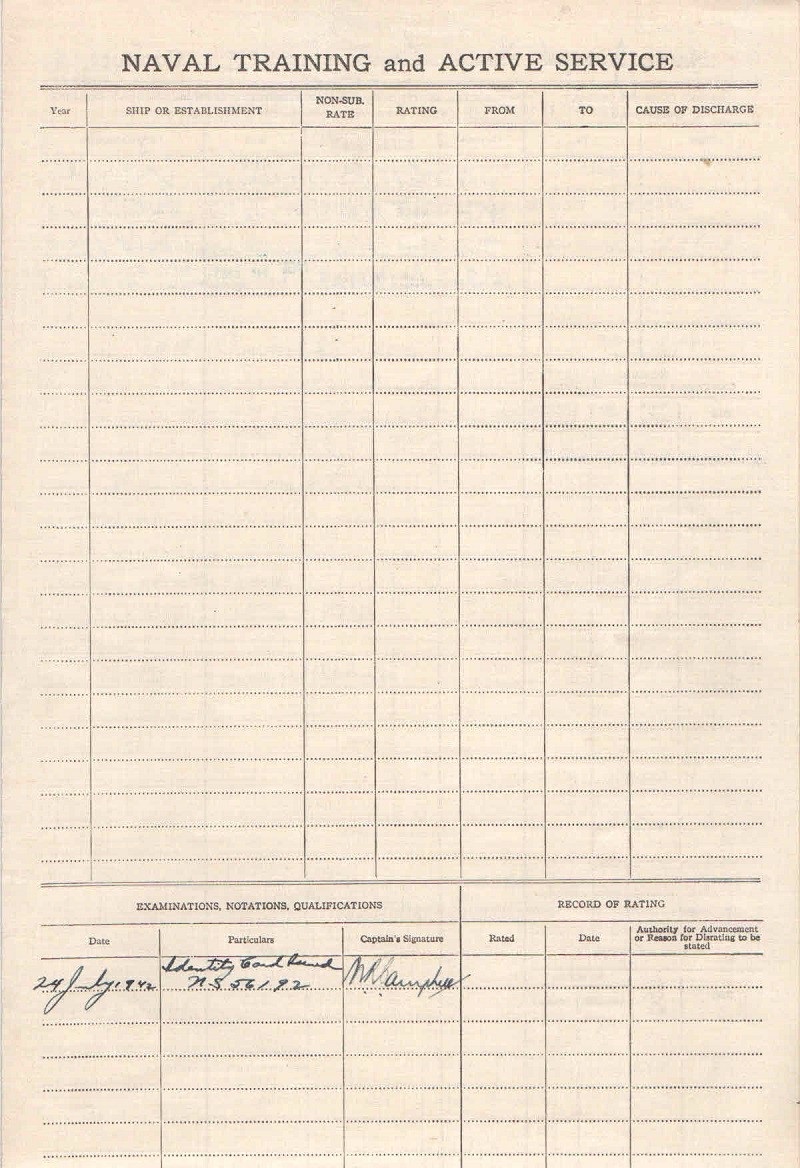 NAVAL TRAINING and ACTIVE SERVICE
Year SHIP OR ESTABLISHMENT NON-SUB. RATE RATING FROM TO CAUSE OF DISCHARGE
EXAMINATIONS, NOTATIONS, QUALIFICATIONS RECORD OF RATING
Date Particulars Captain's Signature Rated Date Authority for Advancement or Reason for Disrating to be stated
Identity Card Issued
July 1942 NS 56192 Campbell